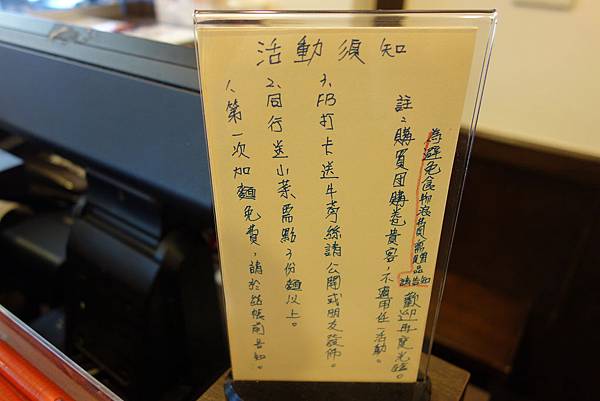 活動須知
1、第一次加麵免費，請於結帳前告知。
2、同行送小菜需點3份麵以上。
3、FB打卡送牛蒡絲請公開或朋友發佈。
註：購買團購卷貴客，不適用任一活動。
為避免食物浪費需買品請告知
歡迎再度光臨。